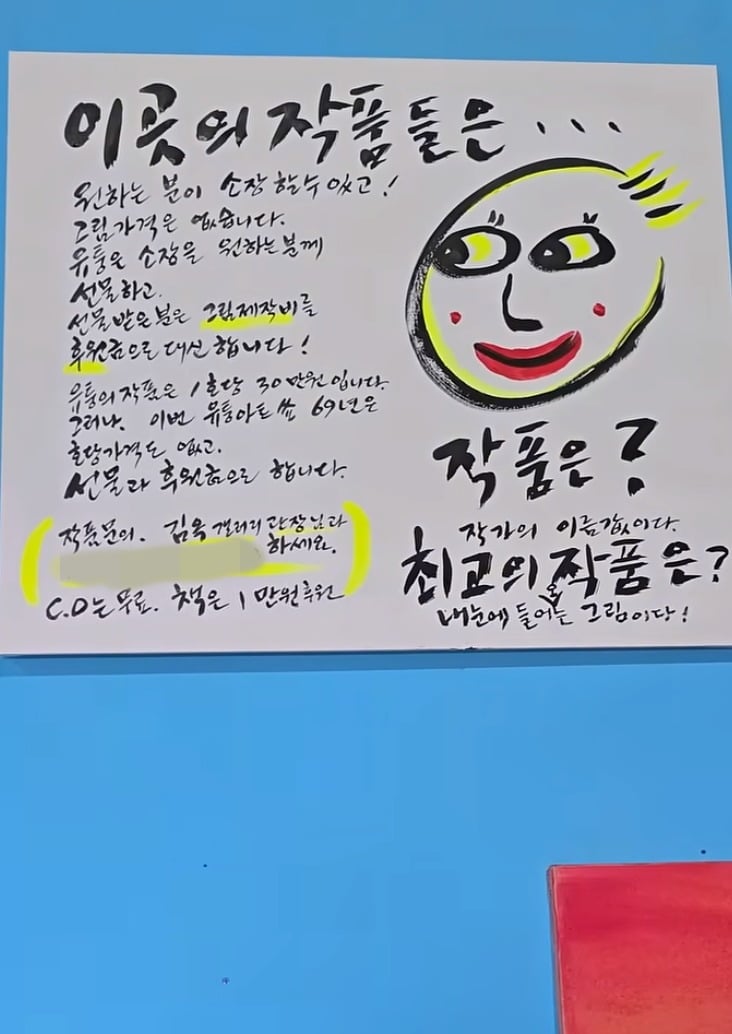 이곳의 작품들은...
원하는 분이 소장 할수 있고!
그림가격은 없습니다.
유퉁은 소장을 원하는분께
선물하고.
선물 받은 분은 그림제작비를
후원금으로 대신 합니다!
유퉁의 작품은 1호당 30만원입니다.
그러나. 이번 유퉁아트쑈 69년은
호당가격도 없고.
선물과 후원금으로 합니다.
(작품문의. 김옥 갤러리 관장님과
하세요.)
C.D는 무료. 책은 1만원후원
작품은?
작가의 이름값이다.
최고의 작품은?
내눈에 들어오는 그림이당!